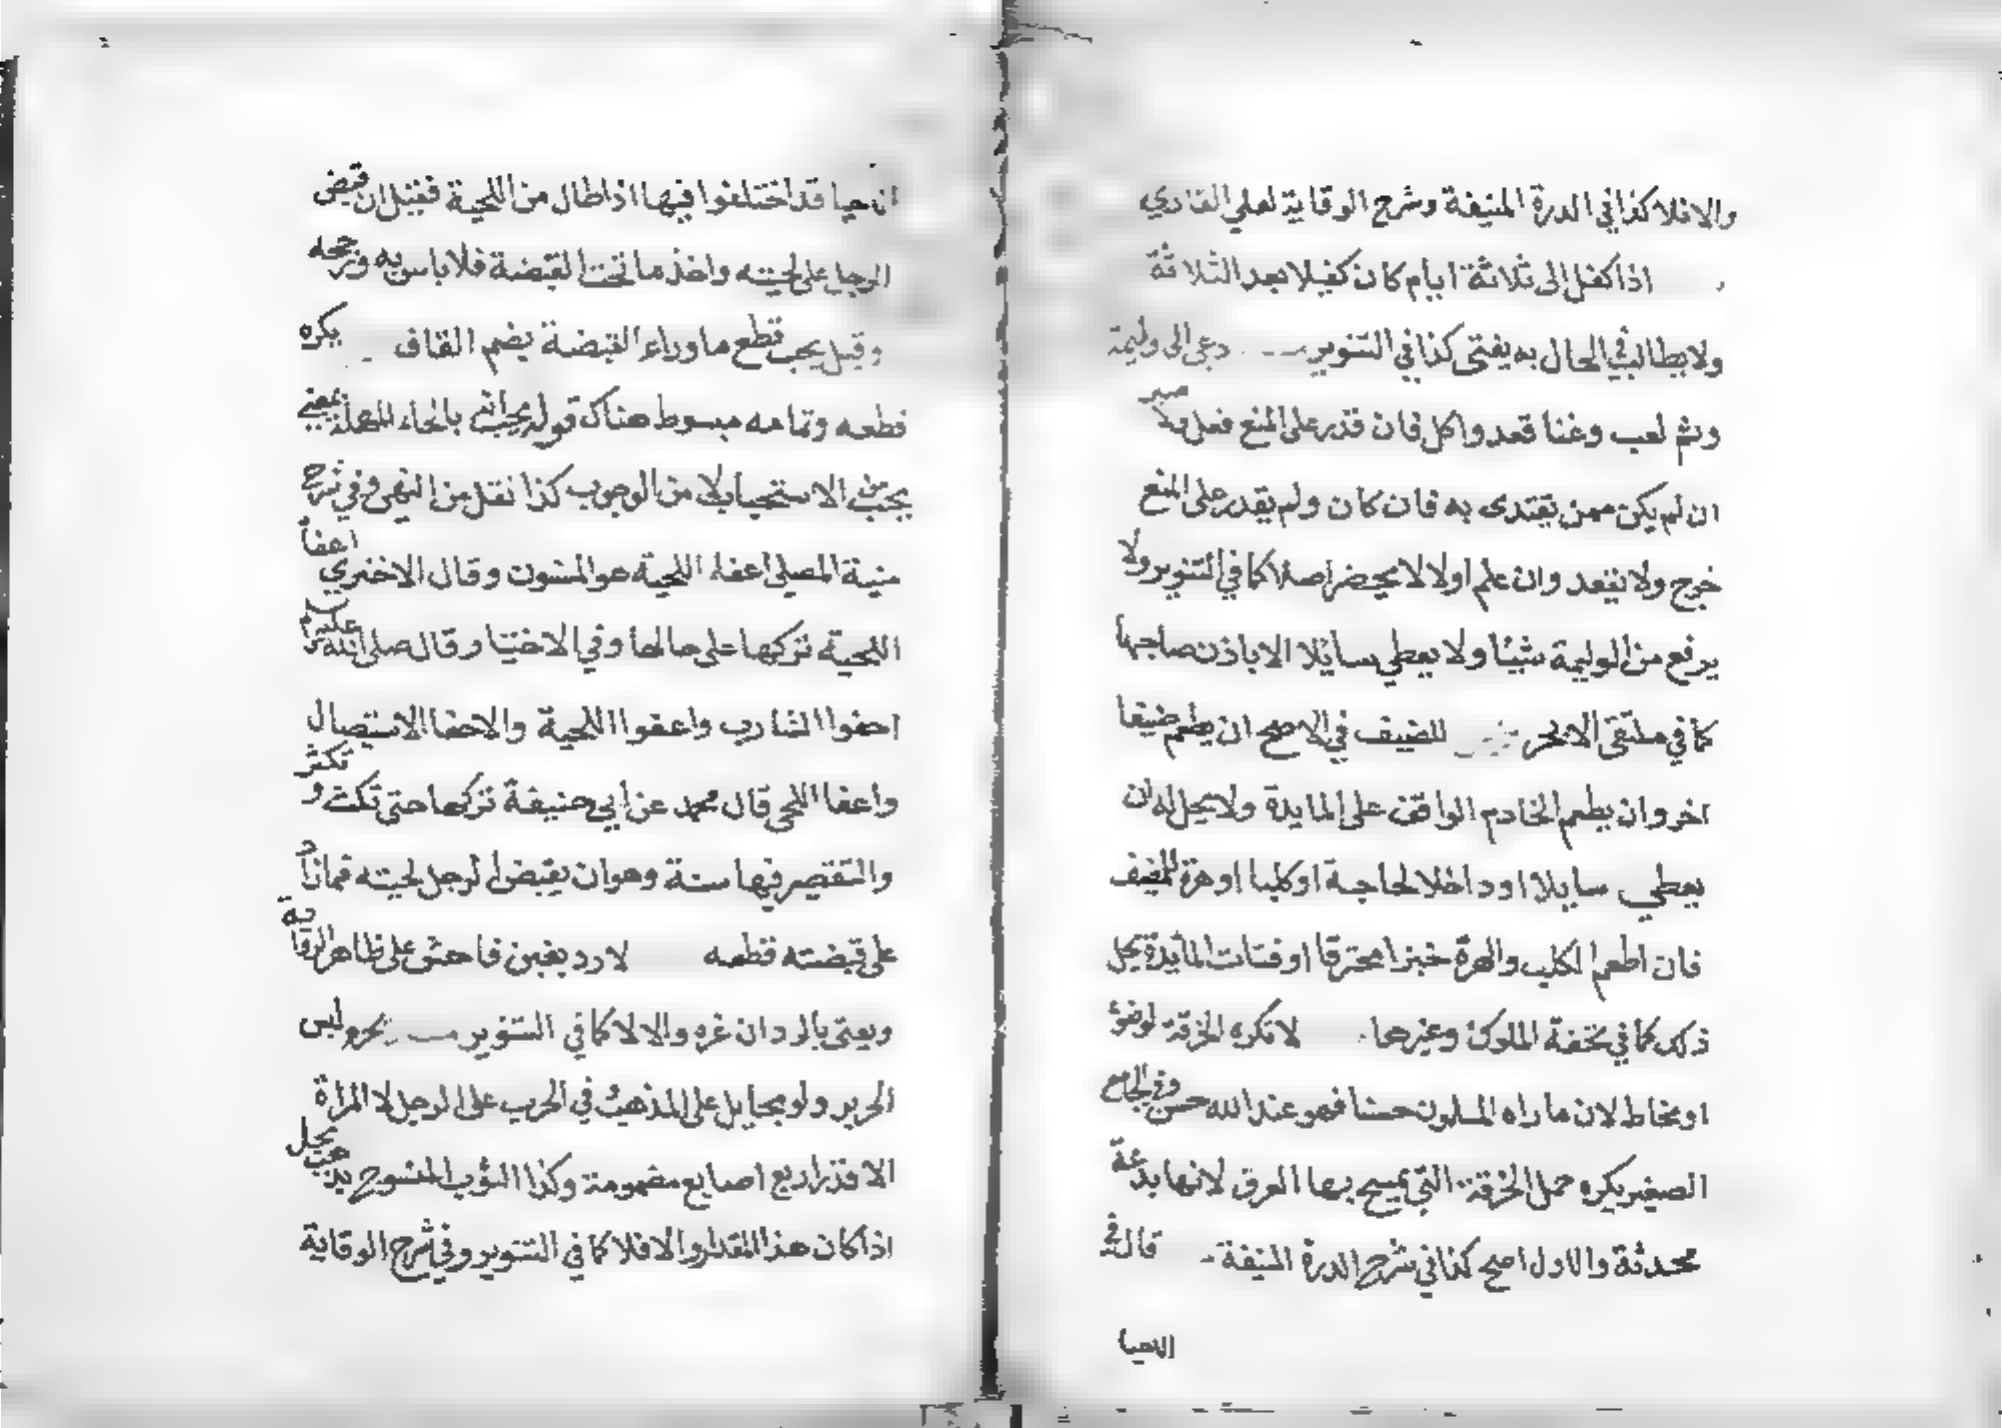 والا فلا كذا في الدرة المنيفة وشرح الوقاية لعلي القاري
اذا كفل الى ثلاثة ايام كان كفيلا بعد الثلاثة
ولا يطالب في الحال به يفتى كذا في التنوير دعي الى وليمة
وثم لعب وغنا قعد واكل فان قدر على المنع فعل والا صبر
ان لم يكن ممن يقتدى به فان كان ولم يقدر على المنع
خرج ولا يقعد وان علم اولا لا يحضر اصلا كما في التنوير ولا
يرفع من الوليمة شيئا ولا يعطي سايلا الا باذن صاحبها
كما في ملتقى الابحر للضيف في الاصح ان يطعم ضيفا
اخر وان يطعم الخادم الواقف على المايدة ولا يحل له ان
يعطي سايلا او داخلا لحاجة او كلبا او هرة للمضيف
فان اطعم الكلب والهرة خبزا محترقا او فتات المائدة يحل
ذلك كما في تحفة الملوك وغيرها لا تكره الخرقة لوضوء
او مخاط لان ما راه المسلمون حسنا فهو عند الله حسن وفي الجامع
الصغير يكره حمل الخرقة التي يمسح بها العرق لانها بدعة
محدثة والاول اصح كذا في شرح الدرة المنيفة قال في
النهيا
ان حيا قد اختلفوا فيها اذا طال من اللحية فقيل ان قبض
الرجل على لحيته واخذ ما تحت القبضة فلا باس به ورجحه
وقيل يجب قطع ما وراء القبضة بضم القاف يكره
قطعه وتمامه مبسوط هناك قوله يحب اي بالحاء المهملة بمعنى
يحب من الاستحباب لا من الوجوب كذا نقل من النهى وفي شرح
منية المصلي اعفاء اللحية هو المسنون وقال الاخنري اعفا
اللحية تركها على حالها وفي الاختيا ر قال صلى الله عليه وسلم
احفوا الشارب واعفوا اللحية والاحفا الاستيصال
واعفا اللحى قال محمد عن ابي حنيفة تركها حتى تكث و تكثر
والتقصير فيها سنة وهو ان يقبض الرجل لحيته فما زاد
على قبضته قطعه لا رد بغبن فاحش على ظاهر الرواية
ويفتى بالرد ان غره والا لا كما في التنوير يحرم لبس
الحرير ولو بحايل على المذهب في الحرب على الرجل لا المراة
الا قدر اربع اصابع مضمومة وكذا الثوب المنسوج بذهب يحل
اذا كان هذا المقدار والا فلا كما في التنوير وفي شرح الوقاية